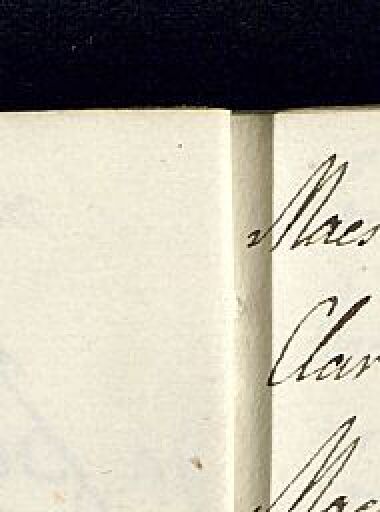 Maes
Clar
Mae